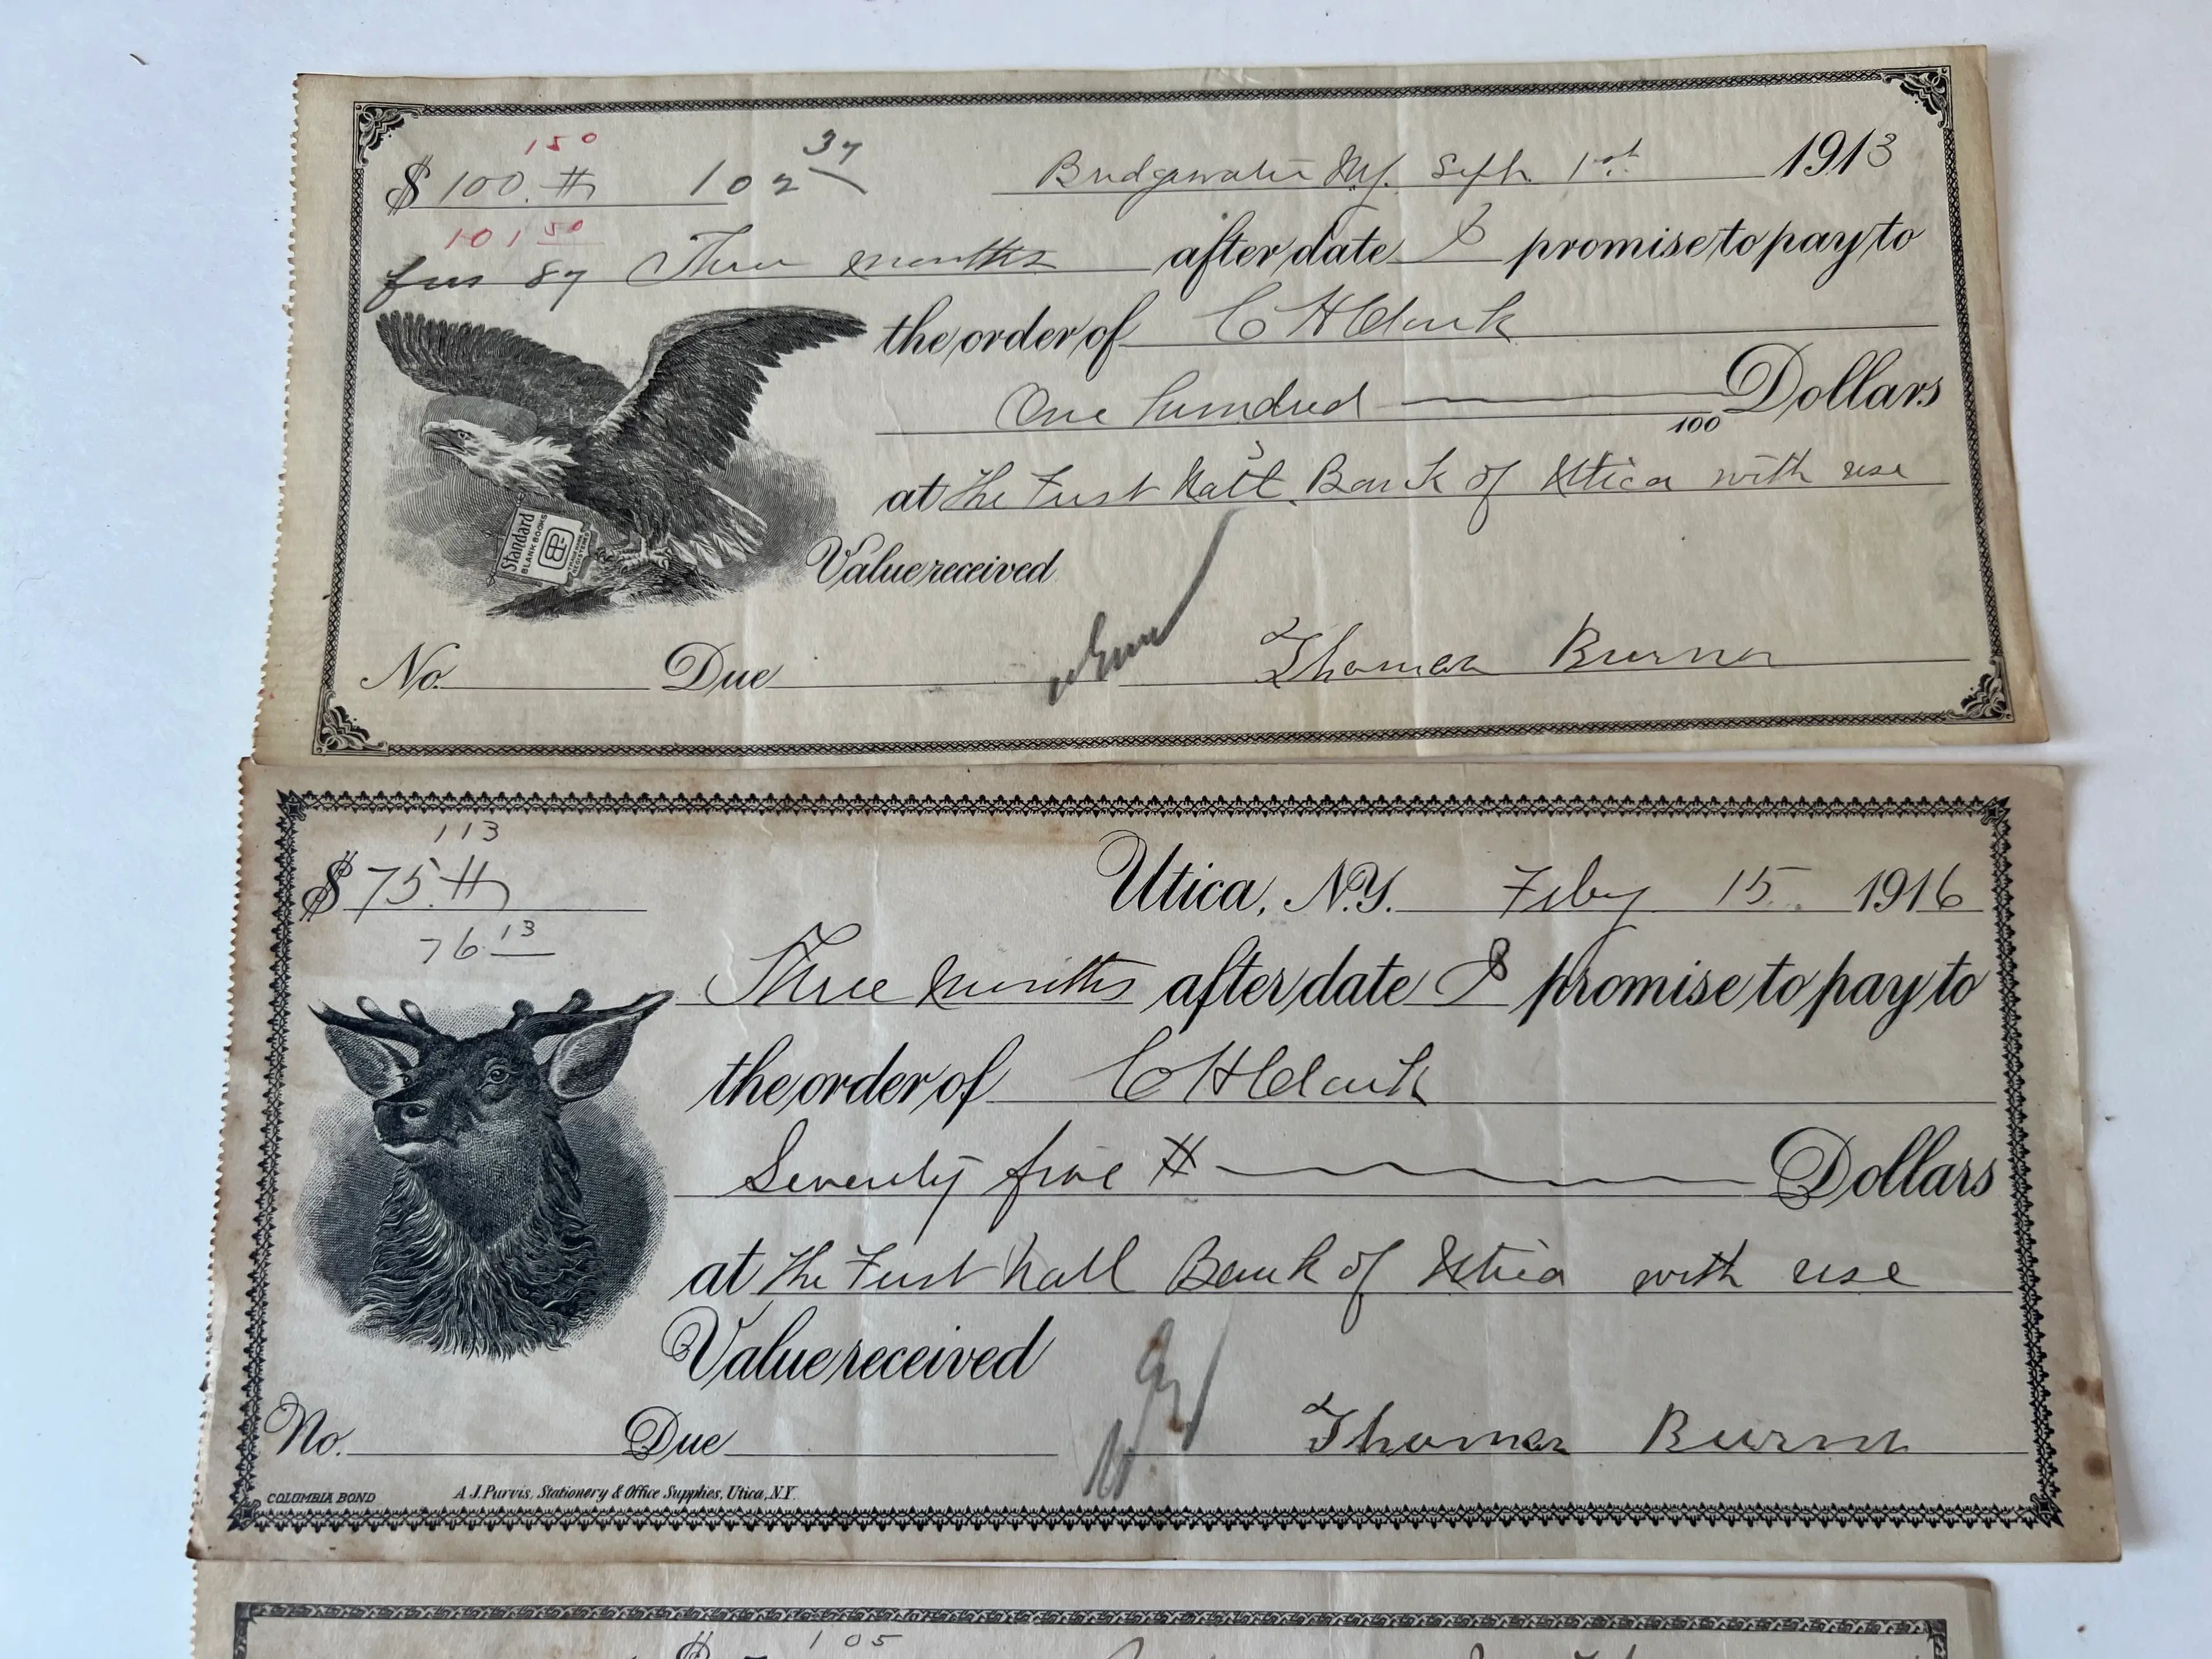 150
$ 100. # 102 37 Bridgewater NY. Sept. 1st 1913
101 50
87 Three months after date I promise to pay to
the order of C H Clark
One hundred 100 Dollars
at the First Natl. Bank of Utica with use
Standard
BLANK BOOKS
Value received
No. Due Thomas Burns
113
$ 75. # Utica, N.Y. Feby 15. 1916
76.13
Three months after date I promise to pay to
the order of C H Clark
Seventy five # Dollars
at the First Natl Bank of Utica with use
Value received
No. Due Thomas Burns
COLUMBIA BOND A J. Purvis, Stationery & Office Supplies, Utica, N.Y.
$ 105